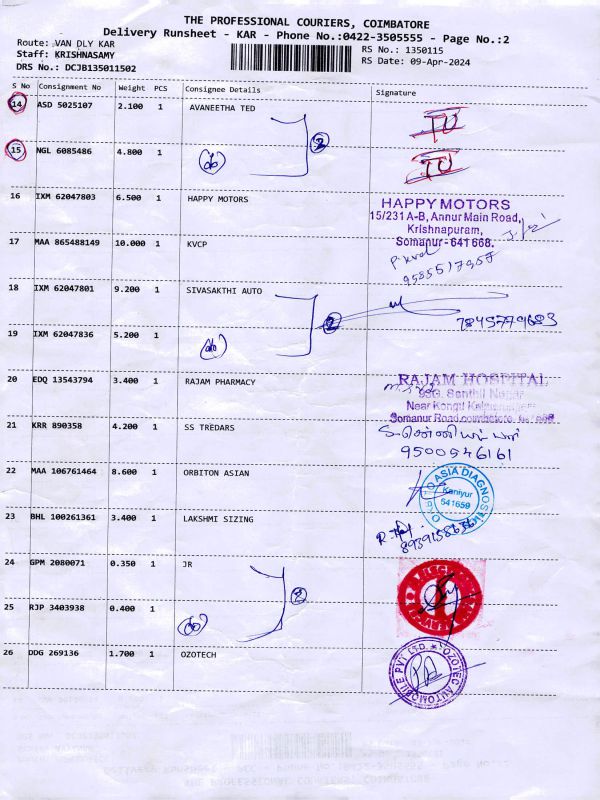 THE PROFESSIONAL COURIERS, COIMBATORE
Delivery Runsheet - KAR - Phone No.:0422-3505555 - Page No.:2
Route: VAN DLY KAR RS No.: 1350115
Staff: KRISHNASAMY RS Date: 09-Apr-2024
DRS No.: DCJB135011502
S No Consignment No Weight PCS Consignee Details Signature
14 ASD 5025107 2.100 1 AVANEETHA TED TU
2
15 NGL 6085486 4.800 1 TU
16 IXM 62047803 6.500 1 HAPPY MOTORS
HAPPY MOTORS
15/231 A-B, Annur Main Road,
Krishnapuram,
Somanur - 641 668.
17 MAA 865488149 10.000 1 KVCP
9585517957
18 IXM 62047801 9.200 1 SIVASAKTHI AUTO
2 7845779683
19 IXM 62047836 5.200 1
20 EDQ 13543794 3.400 1 RAJAM PHARMACY
RAJAM HOSPITAL
Somanur Road
21 KRR 890358 4.200 1 SS TREDARS
9500546161
22 MAA 106761464 8.600 1 ORBITON ASIAN
ASIA DIAGNOSTIC
Kaniyur
641659
23 BHL 100261361 3.400 1 LAKSHMI SIZING
24 GPM 2080071 0.350 1 JR
2
25 RJP 3403938 0.400 1
26 DDG 269136 1.700 1 OZOTECH
OZOTEC AUTOMOBILE PVT LTD.